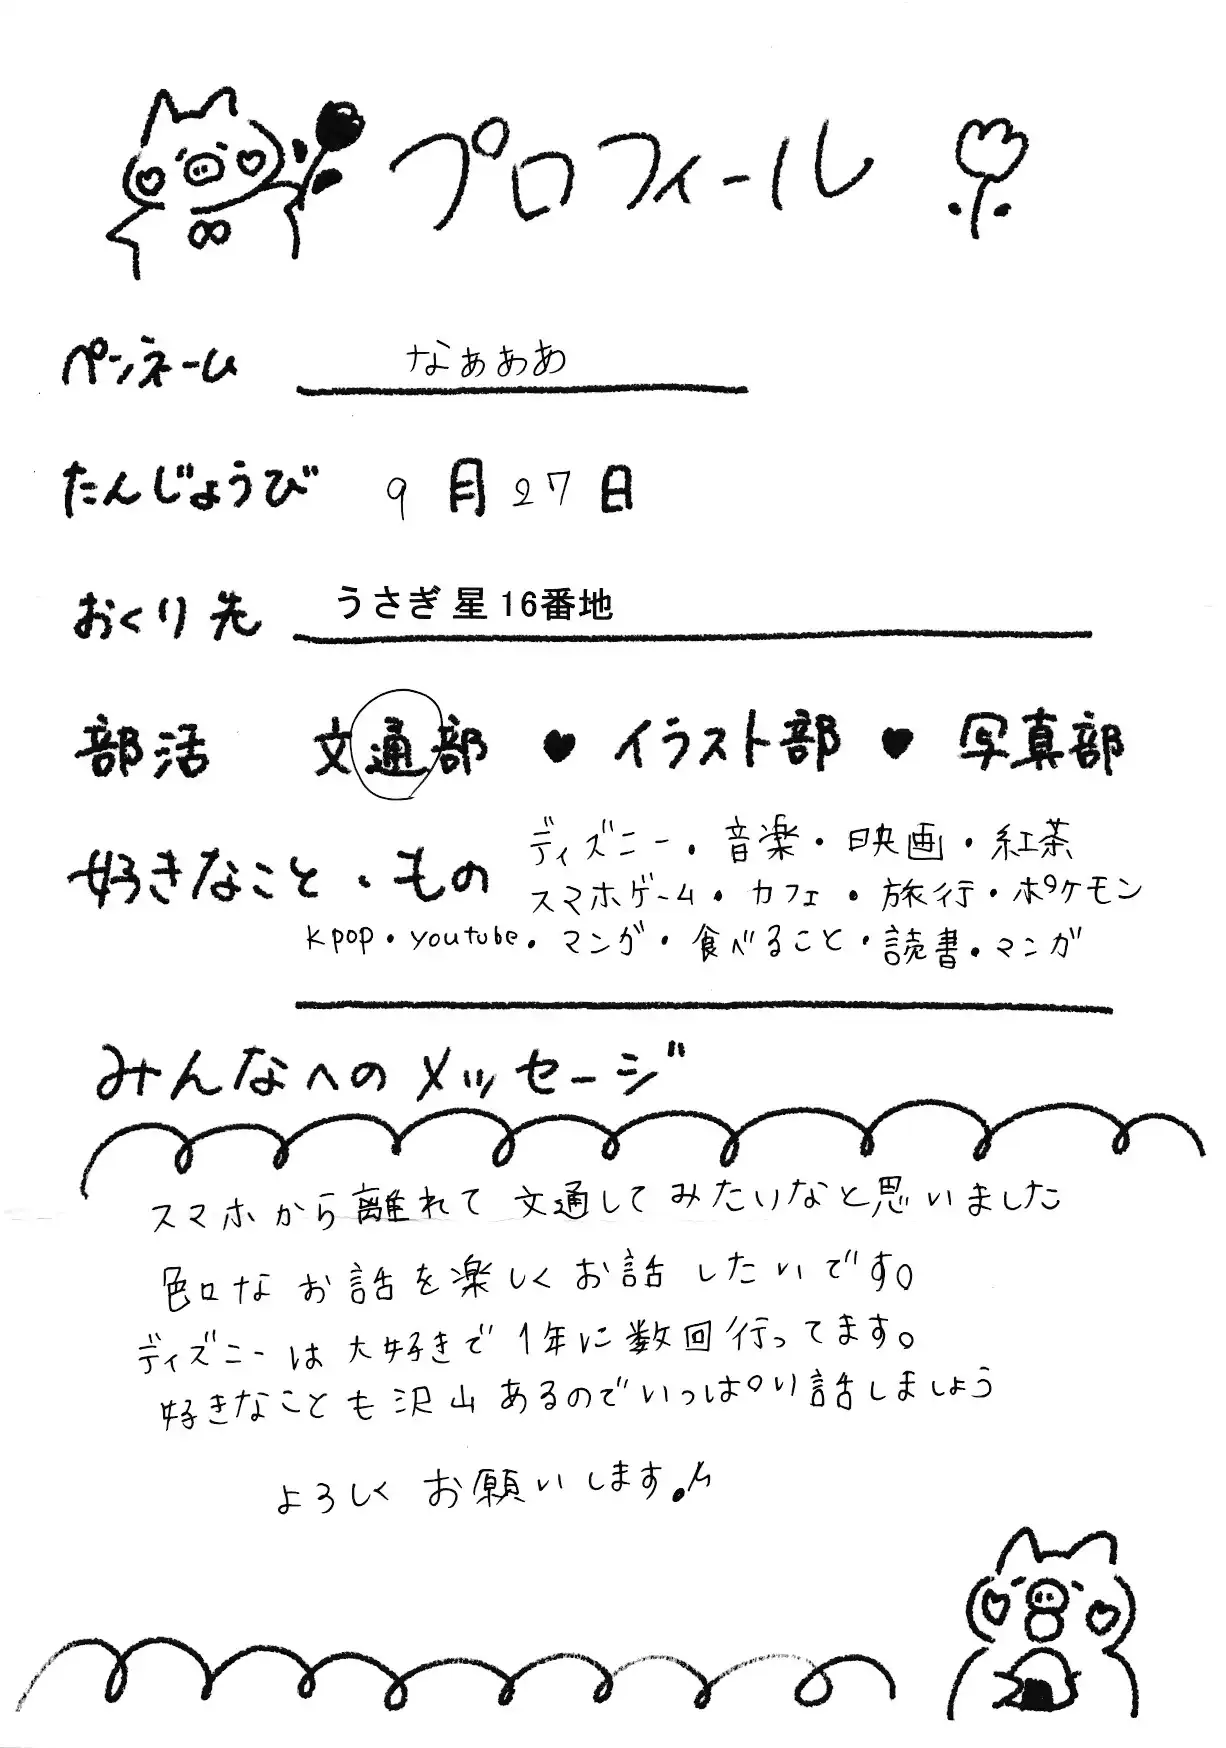 プロフィール
ペンネーム なぁぁあ
たんじょうび 9月27日
おくり先 うさぎ星16番地
部活 文通部 ♥ イラスト部 ♥ 写真部
好きなこと・もの ディズニー・音楽・映画・紅茶
スマホゲーム・カフェ・旅行・ポケモン
kpop・youtube・マンガ・食べること・読書・マンガ
みんなへのメッセージ
スマホから離れて文通してみたいなと思いました
色々なお話を楽しくお話したいです。
ディズニーは大好きで1年に数回行ってます。
好きなことも沢山あるのでいっぱい話しましょう
よろしくお願いします。